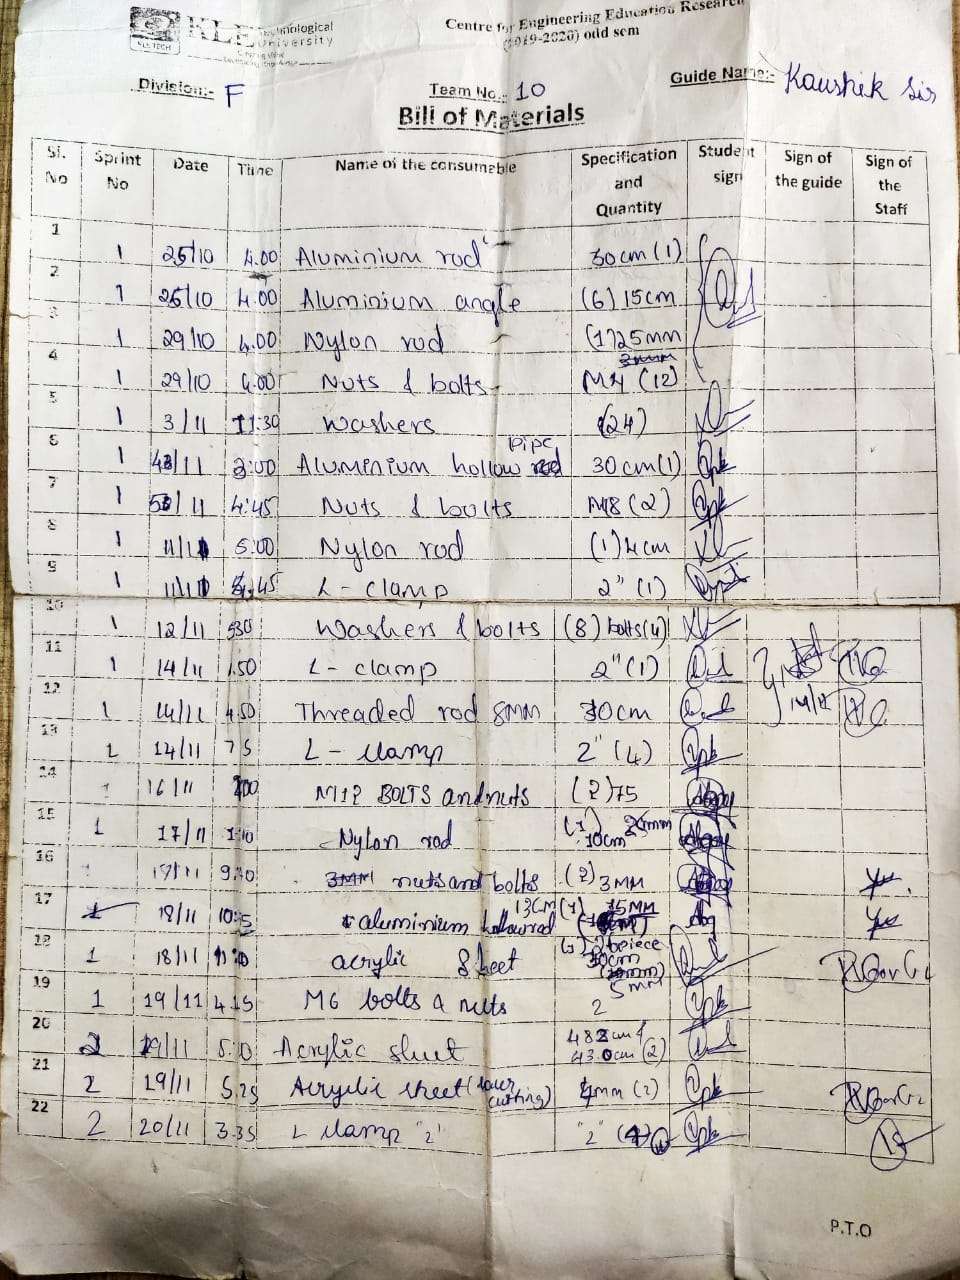 KLE Technological University
KLE TECH
Centre for Engineering Education Research
(2019-2020) odd sem
Division:- F Team No.- 10 Guide Name:- Kaushik Sir
Bill of Materials
Sl. No Sprint No Date Time Name of the consumable Specification and Quantity Student sign Sign of the guide Sign of the Staff
1 1 25/10 4.00 Aluminium rod 30cm (1)
2 1 25/10 4.00 Aluminium angle (6) 15cm
3 1 29/10 4.00 Nylon rod (1) 25mm
4 1 29/10 4.00 Nuts & bolts M4 (12)
5 1 3/11 11:30 Washers (24)
6 1 3:00 Aluminium hollow pipe 30cm (1)
7 1 4:45 Nuts & boults M8 (2)
8 1 5:00 Nylon rod (1) 4cm
9 1 L - clamp 2" (1)
10 1 12/11 530 Washers & bolts (8) bolts(4)
11 1 14/11 1.50 L - clamp 2" (1)
14/11
12 1 14/11 4.50 Threaded rod 8MM 30cm
13 1 14/11 7 5 L - clamp 2" (4)
14 1 16/11 M12 BOLTS and nuts (2) 75
15 1 17/11 1:10 Nylon rod (1) 10cm
16 nuts and bolts (2) 3MM
17 18/11 10:15 aluminium 13cm (1) 15MM
18 1 18/11 acrylic sheet 30cm 5mm
19 1 19/11 4.15 M6 bolts & nuts 2
20 2 19/11 5.10 Acrylic sheet 43.0cm (2)
21 2 19/11 5.25 Acrylic sheet (laser cutting) 4mm (2)
22 2 20/11 3.35 L clamp "2" "2" (4)
P.T.O